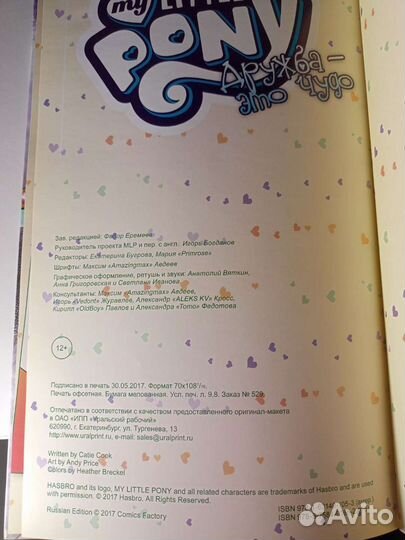 my LITTLE
PONY
Дружба –
это чудо
Зав. редакцией: Фавор Еремеев
Руководитель проекта MLP и пер. с англ. Игорь Богданов
Редакторы: Екатерина Бугрова, Мария «Primrose»
Шрифты: Максим «Amazingmax» Авдеев
Графическое оформление, ретушь и звуки: Анатолий Вяткин,
Анна Григоровская и Светлана Иванова
Консультанты: Максим «Amazingmax» Авдеев,
Игорь «Vedont» Журавлев, Александр «ALEKS KV» Кросс,
Кирилл «OldBoy» Павлов и Александра «Tomo» Федотова
12+
Подписано в печать 30.05.2017. Формат 70х108¹/₁₆.
Печать офсетная. Бумага мелованная. Усл. печ. л. 9,8. Заказ № 529.
Отпечатано в соответствии с качеством предоставленного оригинал-макета
в ОАО «ИПП «Уральский рабочий»
620990, г. Екатеринбург, ул. Тургенева, 13
http://www.uralprint.ru, e-mail: sales@uralprint.ru
Written by Catie Cook
Art by Andy Price
Colors by Heather Breckel
HASBRO and its logo, MY LITTLE PONY and all related characters are trademarks of Hasbro and are used
with permission. © 2017 Hasbro. All Rights Reserved.
Russian Edition © 2017 Comics Factory
ISBN
ISBN
Avito